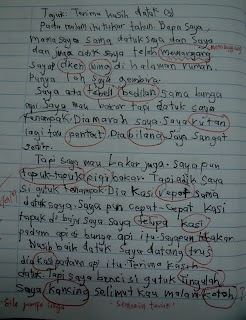 Tajuk: Terima kasih datuk (s)
Pada malam itu tikar tahun Bapa Saya
mama Saya sama datuk saya dan Saya
dan juga adik saya telah memangang
Sayap di halaman rumah.
Punya lah saya gembira.
Saya ada tebeli bedilan sama bunga
api Saya mau bakar tapi datuk saya
tanampak. Dia marah saya. Saya kutan
lagi tau pantat Dia bilang. Saya sangat
sedir.
Tapi saya mau bakar juga. Saya pun
tapuk-tapuk pigi bakar. Tapi adik saya
si gutuk tanampak Dia kasi repot sama
datuk saya. Saya pun cepat-cepat kasi
tapak di baju saya. Saya lupa kasi
padam api di bunga api itu. Saya pun takar
Nasib baik datuk Saya datang trus
dia kasi padam api itu. Terima kasih
datuk. Tapi saya banci si gutuk tingulah
Saya kancing selimut kau malam